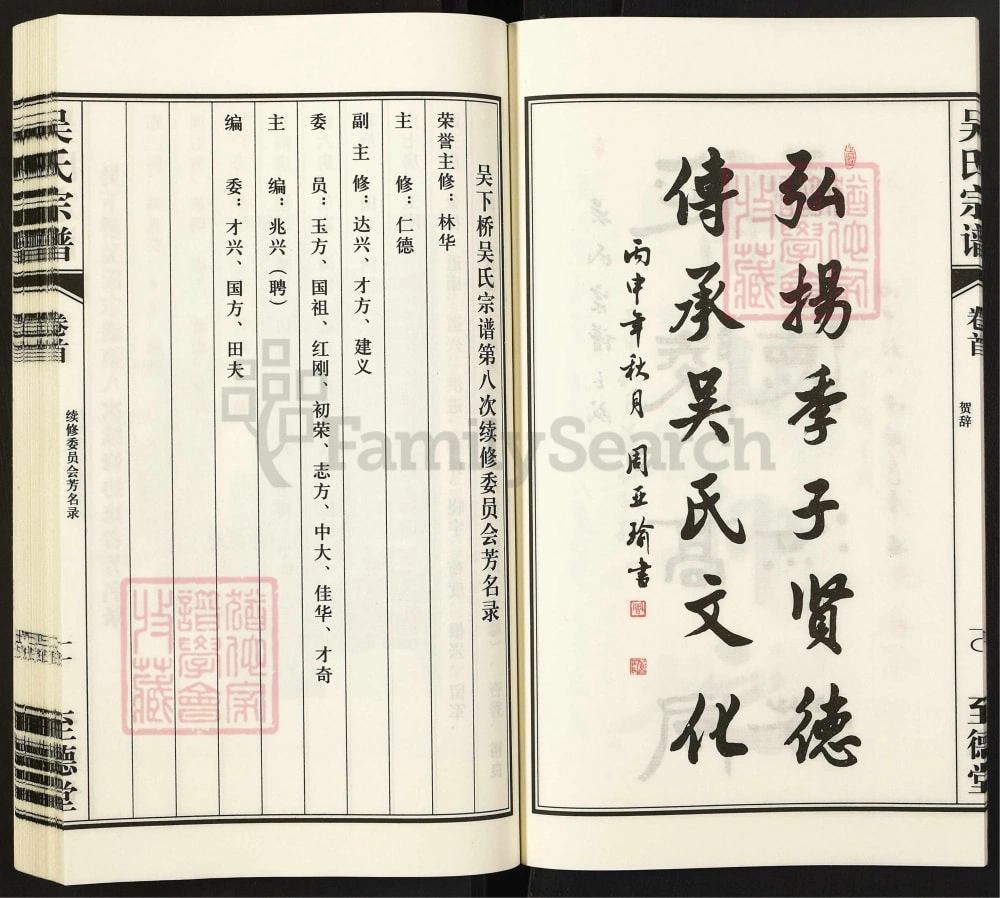 弘揚季子贤德
傳承吴氏文化
丙申年秋月 周亚瑜書
吴氏宗谱
卷首
贺辞
至德堂
吴下桥吴氏宗谱第八次续修委员会芳名录
荣誉主修：林华
主修：仁德
副主修：达兴、才方、建义
委员：玉方、国祖、红刚、初荣、志方、中大、佳华、才奇
主编：兆兴（聘）
编委：才兴、国方、田夫
吴氏宗谱
卷首
续修委员会芳名录
至德堂
猶他家譜學會特藏
猶他家譜學會特藏
FamilySearch